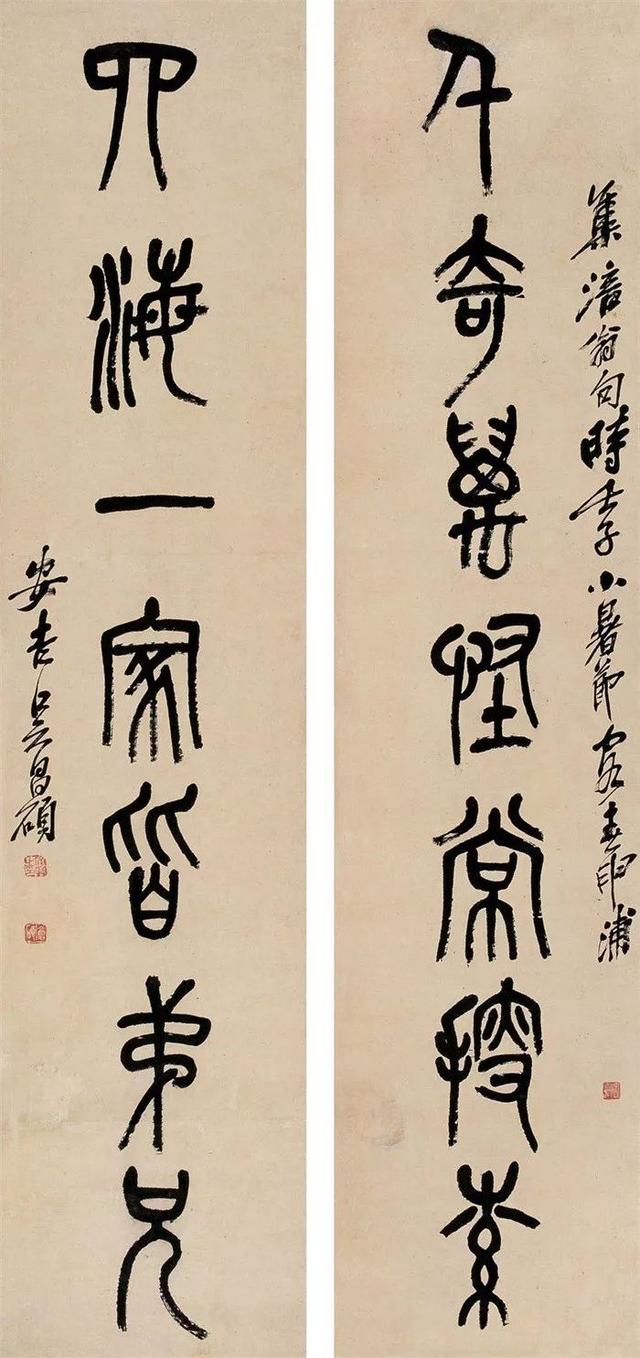 千奇萬怪常搜索
集涪翁句時壬子小暑節客春申浦
四海一家皆弟兄
安吉吳昌碩